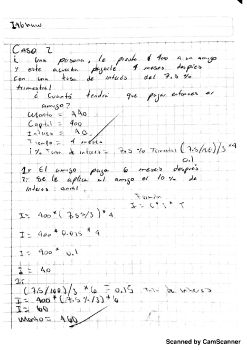 Caso 2
Una persona, le presta $ 400 a un amigo
y este acuerda pagarle 4 meses después
con una tasa de interés del 7.5 %
trimestral
¿ Cuánto tendrá que pagar entonces el
amigo?
Monto = 440
Capital = 400
Interes = 40
Tiempo = 4 meses
i % Tasa de interes = 7.5 % Trimestral (7.5/100)/3 * 4
0.1
El amigo paga 6 meses después
Se le aplica al amigo el 10 % de
interes anual.
Formula
I = C * i * T
I = 400 * (7.5%/3) * 4
I = 400 * 0.025 * 4
I = 400 * 0.1
I = 40
(7.5/100)/3 * 6 = 0.15
I = 400 * (7.5%/3) * 6
I = 60
Monto = 460
Scanned by CamScanner